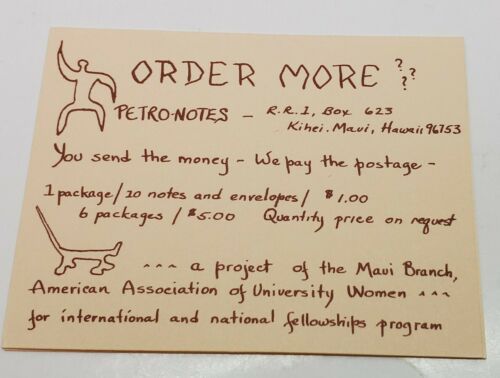 ORDER MORE ???
PETRO-NOTES - R.R.1, Box 623
Kihei, Maui, Hawaii 96753
You send the money - We pay the postage -
1 package/10 notes and envelopes/ $1.00
6 packages / $5.00 Quantity price on request
~~~ a project of the Maui Branch,
American Association of University Women ~~~
for international and national fellowships program